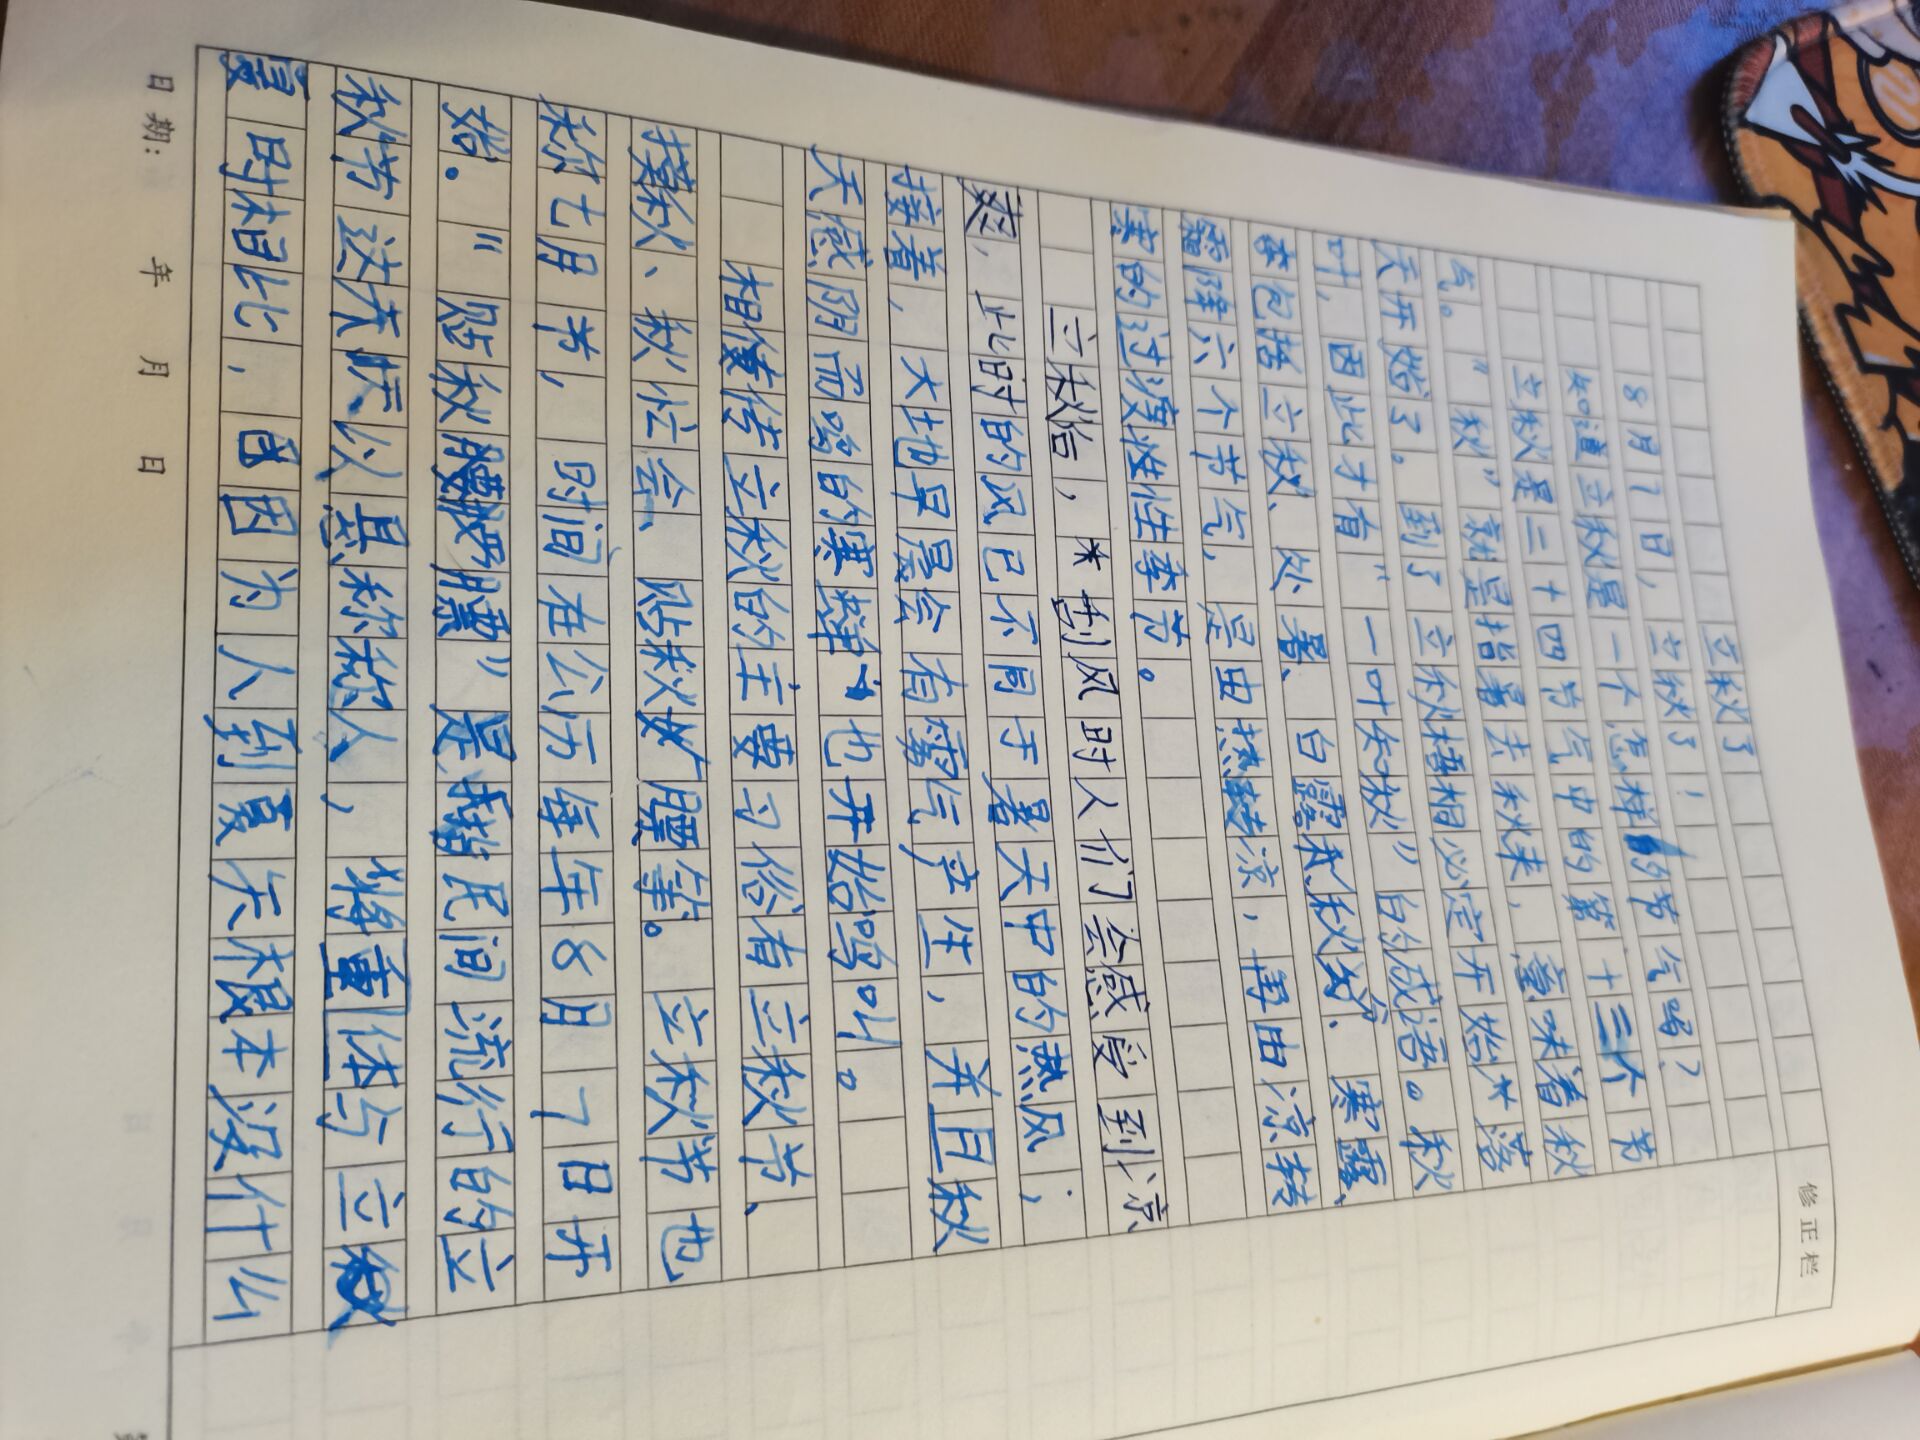 立秋了
8月7日，立秋了！
知道立秋是一个怎样的节气吗？
立秋是二十四节气中的第十三个节
气。“秋”就是指暑去秋来，意味着秋
天开始了。到了立秋梧桐必定开始落
叶，因此才有“一叶知秋”的成语。秋
季包括立秋、处暑、白露、秋分、寒露、
霜降六个节气，是由热转凉，再由凉转
寒的过渡性季节。
立秋后，刮风时人们会感受到凉
爽，此时的风已不同于暑天中的热风；
接着，大地早晨会有雾气产生，并且秋
天感阴而鸣的寒蝉也开始鸣叫。
相传立秋的主要习俗有立秋节、
摸秋、秋忙会、贴秋膘等。立秋节也
称七月节，时间在公历每年8月7日开
始。“贴秋膘”是指民间流行的立
秋节这天以悬称称人，将重体与立秋
夏时相比，因为人到夏天根本没什么
日期： 年 月 日
修正栏